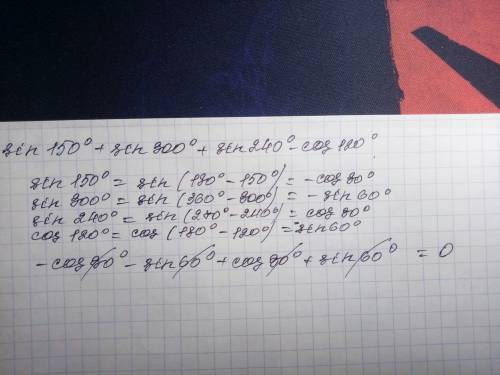 sin 150° + sin 300° + sin 240° - cos 120°
sin 150° = sin (180° - 150°) = - cos 30°
sin 300° = sin (360° - 300°) = - sin 60°
sin 240° = sin (270° - 240°) = cos 30°
cos 120° = cos (180° - 120°) = sin 60°
- cos 30° - sin 60° + cos 30° + sin 60° = 0